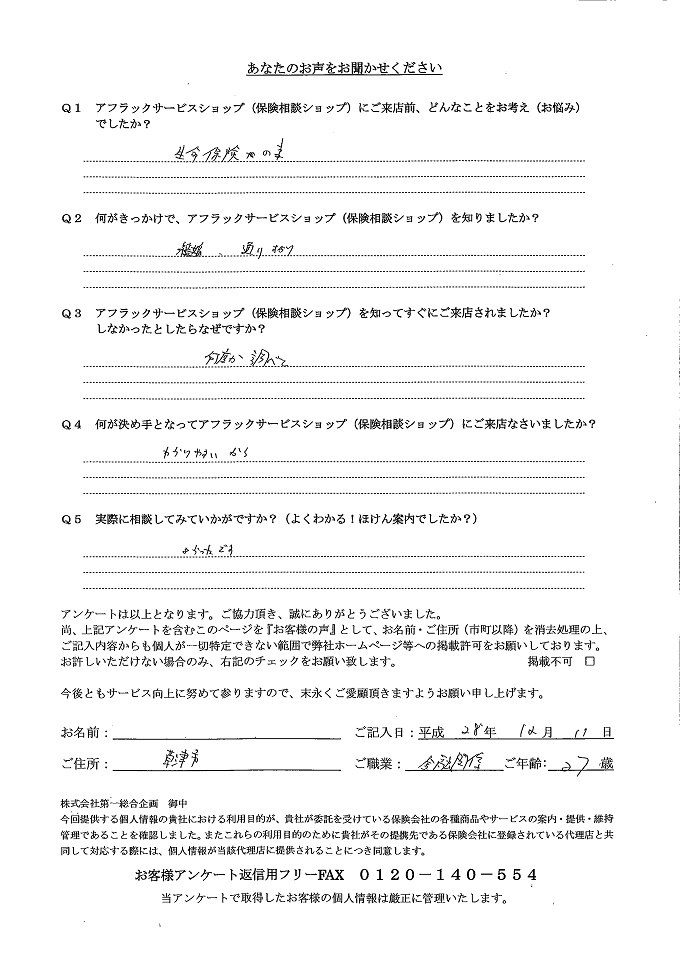 あなたのお声をお聞かせください
Q1 アフラックサービスショップ（保険相談ショップ）にご来店前、どんなことをお考え（お悩み）
でしたか？
生命保険の事
Q2 何がきっかけで、アフラックサービスショップ（保険相談ショップ）を知りましたか？
、通り
Q3 アフラックサービスショップ（保険相談ショップ）を知ってすぐにご来店されましたか？
しなかったとしたらなぜですか？
何度か 調べて
Q4 何が決め手となってアフラックサービスショップ（保険相談ショップ）にご来店なさいましたか？
わかりやすい から
Q5 実際に相談してみていかがですか？（よくわかる！ほけん案内でしたか？）
よかったです
アンケートは以上となります。ご協力頂き、誠にありがとうございました。
尚、上記アンケートを含むこのページを『お客様の声』として、お名前・ご住所（市町以降）を消去処理の上、
ご記入内容からも個人が一切特定できない範囲で弊社ホームページ等への掲載許可をお願いしております。
お許しいただけない場合のみ、右記のチェックをお願い致します。 掲載不可 □
今後ともサービス向上に努めて参りますので、末永くご愛顧頂きますようお願い申し上げます。
お名前： ご記入日：平成 28 年 12 月 11 日
ご住所： 草津市 ご職業： 金融関係 ご年齢： 27 歳
株式会社第一総合企画 御中
今回提供する個人情報の貴社における利用目的が、貴社が委託を受けている保険会社の各種商品やサービスの案内・提供・維持
管理であることを確認しました。またこれらの利用目的のために貴社がその提携先である保険会社に登録されている代理店と共
同して対応する際には、個人情報が当該代理店に提供されることにつき同意します。
お客様アンケート返信用フリーFAX 0120－140－554
当アンケートで取得したお客様の個人情報は厳正に管理いたします。